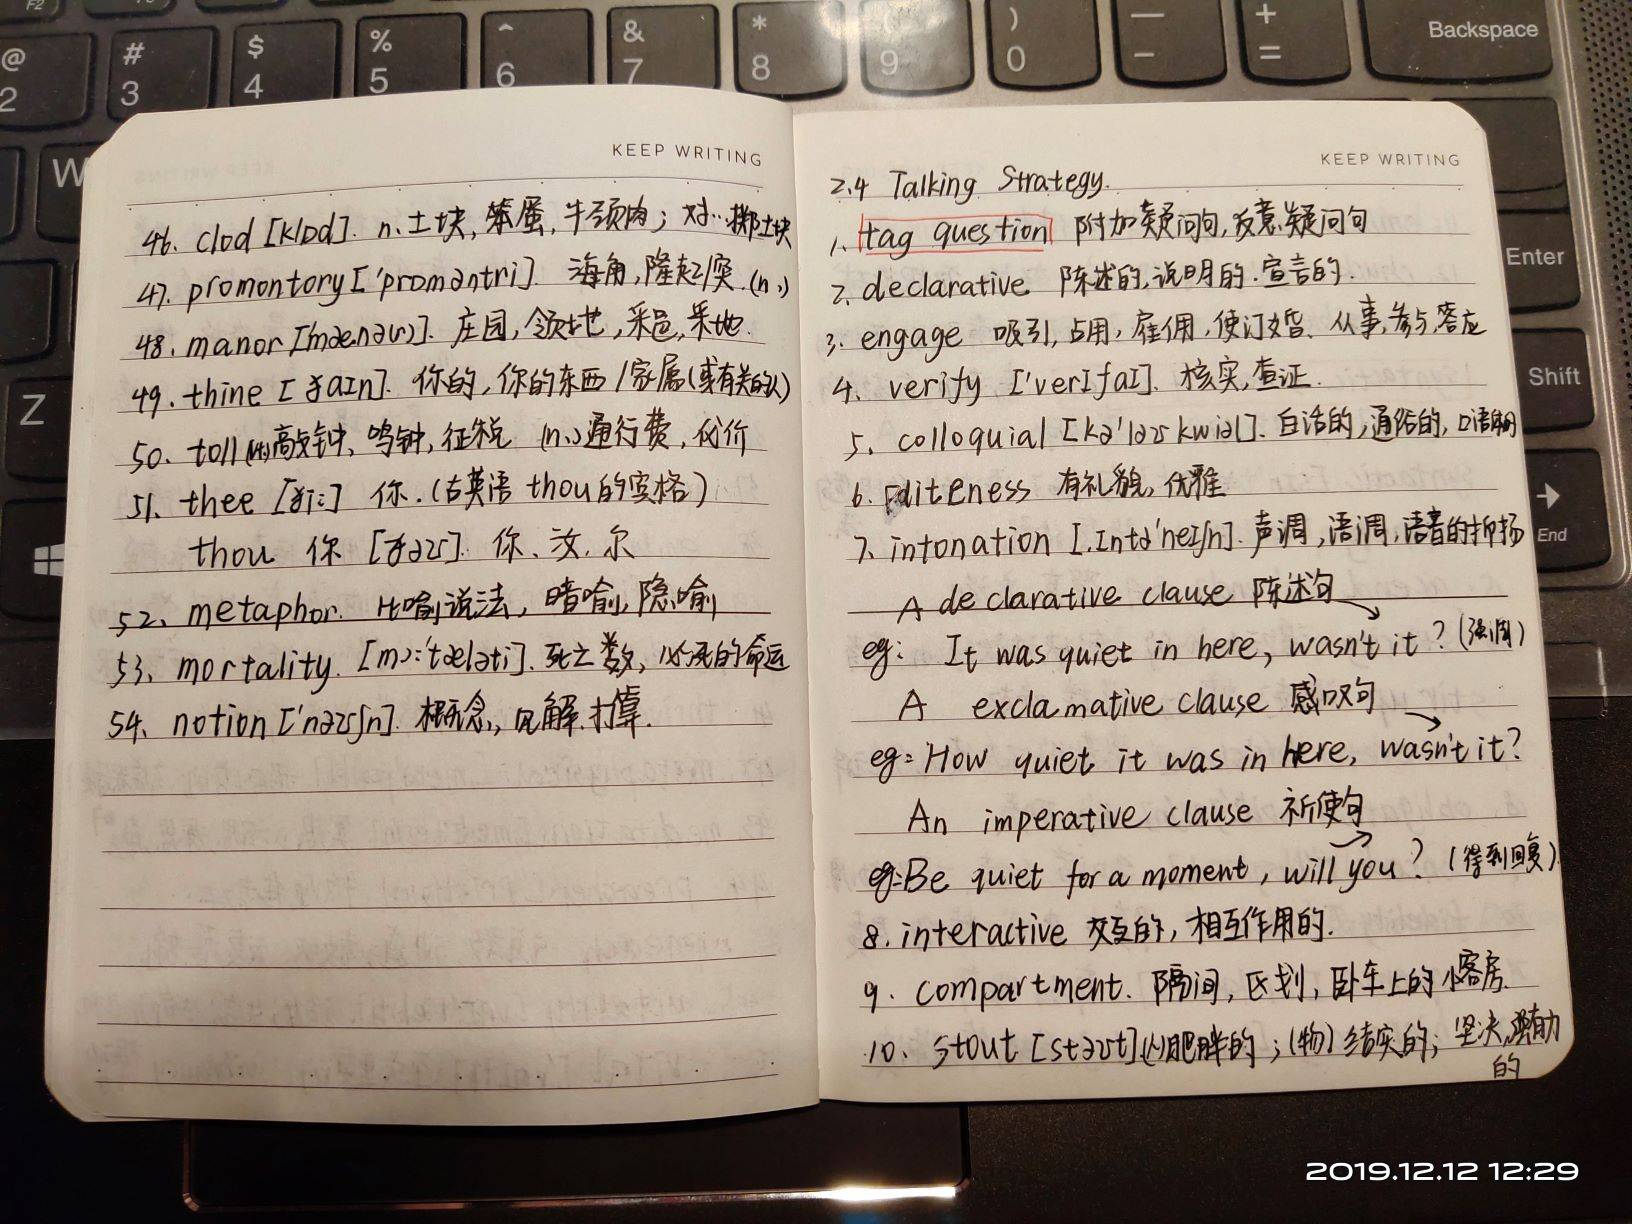 KEEP WRITING
46. clod [klɒd]. n. 土块, 笨蛋, 牛颈肉; 对…掷土块
47. promontory ['prɒməntri]. 海角, 隆起/突. (n.)
48. manor [mænə(r)]. 庄园, 领地, 采邑, 采地.
49. thine [ðaɪn]. 你的, 你的东西/家属(或有关的人)
50. toll 敲钟, 鸣钟, 征税 (n.) 通行费, 代价
51. thee [ði:] 你. (古英语 thou 的宾格)
thou 你 [ðəʊ]. 你、汝、尔
52. metaphor. 比喻说法, 暗喻, 隐喻
53. mortality. [mɔ:'tæləti]. 死亡数, 必死的命运
54. notion ['nəʊʃn]. 概念, 见解. 打算.
KEEP WRITING
2.4 Talking Strategy.
1. tag question 附加疑问句, 反意疑问句
2. declarative 陈述的, 说明的. 宣言的.
3. engage 吸引, 占用, 雇佣, 使订婚、从事, 参与, 答应
4. verify ['verɪfaɪ]. 核实, 查证.
5. colloquial [kə'ləʊkwiəl]. 白话的, 通俗的, 口语
6. politeness 有礼貌, 优雅
7. intonation [ˌɪntə'neɪʃn]. 声调, 语调, 语音的抑扬
A declarative clause 陈述句
eg: It was quiet in here, wasn't it? (强调)
A exclamative clause 感叹句
eg: How quiet it was in here, wasn't it?
An imperative clause 祈使句
eg: Be quiet for a moment, will you? (得到回复)
8. interactive 交互的, 相互作用的.
9. compartment. 隔间, 区划, 卧车上的小客房.
10. stout [stəʊt] (人)肥胖的; (物) 结实的; 坚决, 强有力
的
2019.12.12 12:29
@ 2
# 3
$ 4
% 5
^ 6
& 7
* 8
( 9
) 0
— -
+ =
Backspace
W
Z
Enter
Shift
End